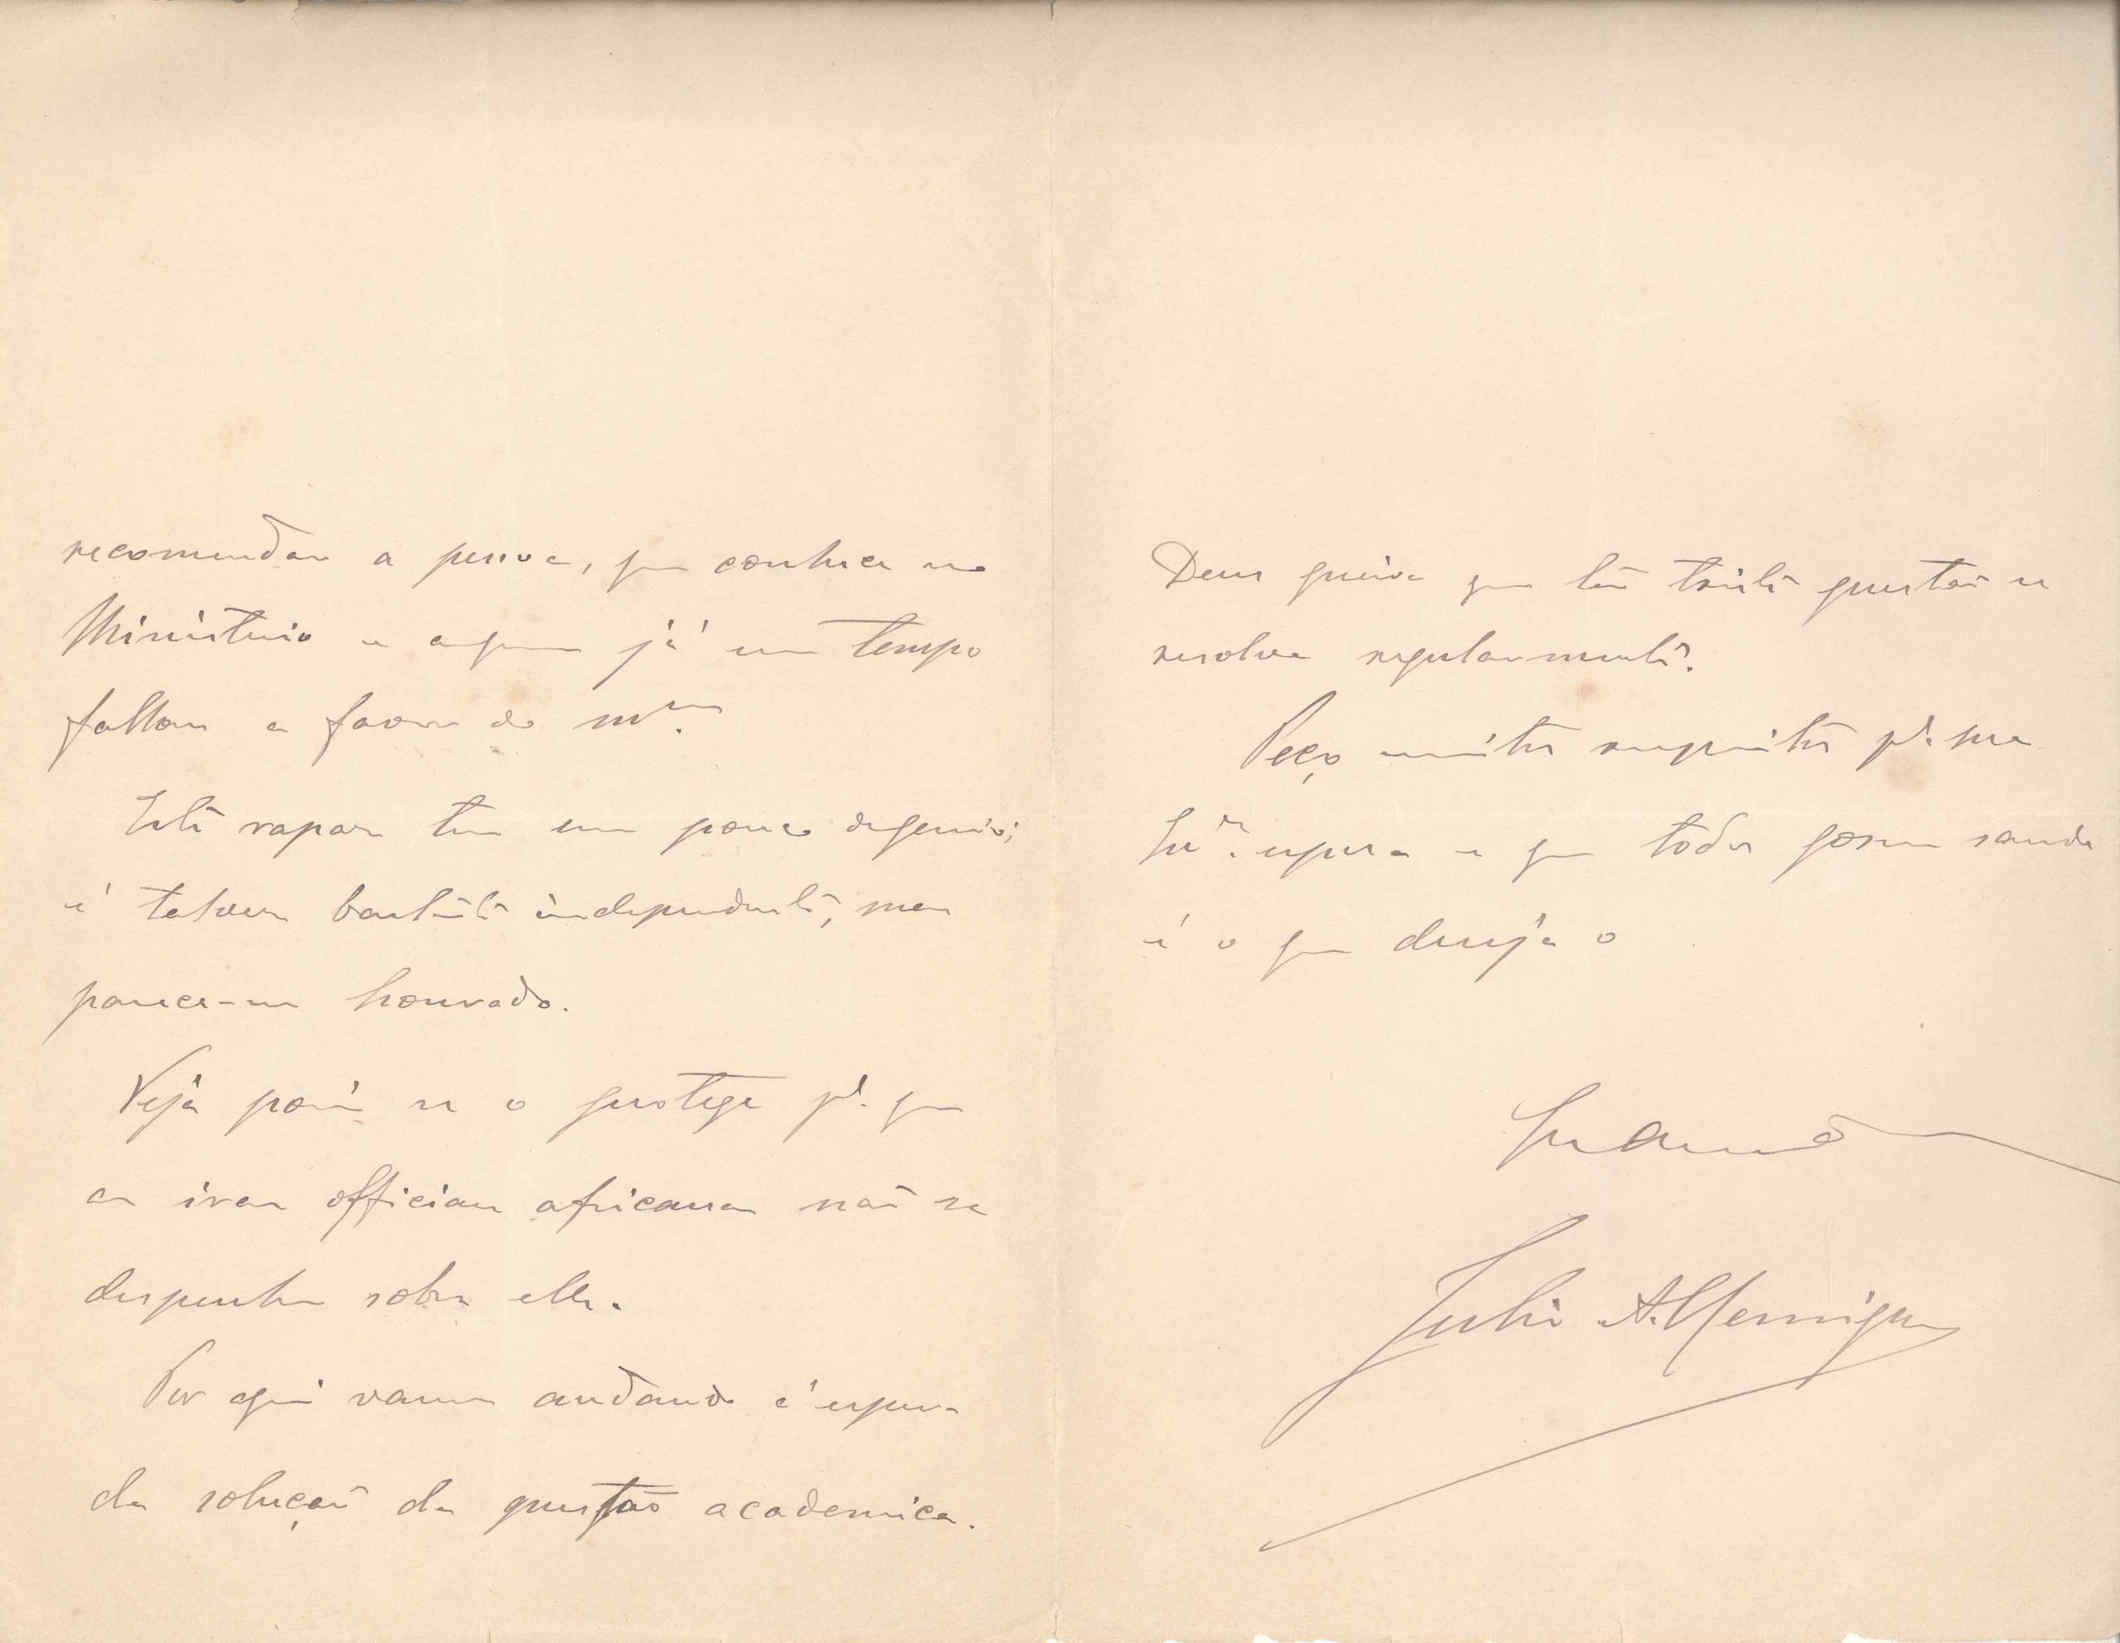 recomendar a pessoa, que conhece no
Ministerio e a quem já em tempo
fallou a favor do mmo.
Este rapaz tem um pouco de genio;
é talvez bastante independente, mas
parece-me honrado.
Veja pois se o protege pa. que
as iras officiaes africanas não se
despenhem sobre elle.
Por aqui vamos andando á espera
da solução da questão academica.
Deus queira que tão triste questão se
resolva regularmente.
Peço muitos respeitos pa. sua
Sra. esposa e que todos gosem saude
é o que deseja o
Julio A. Henriques